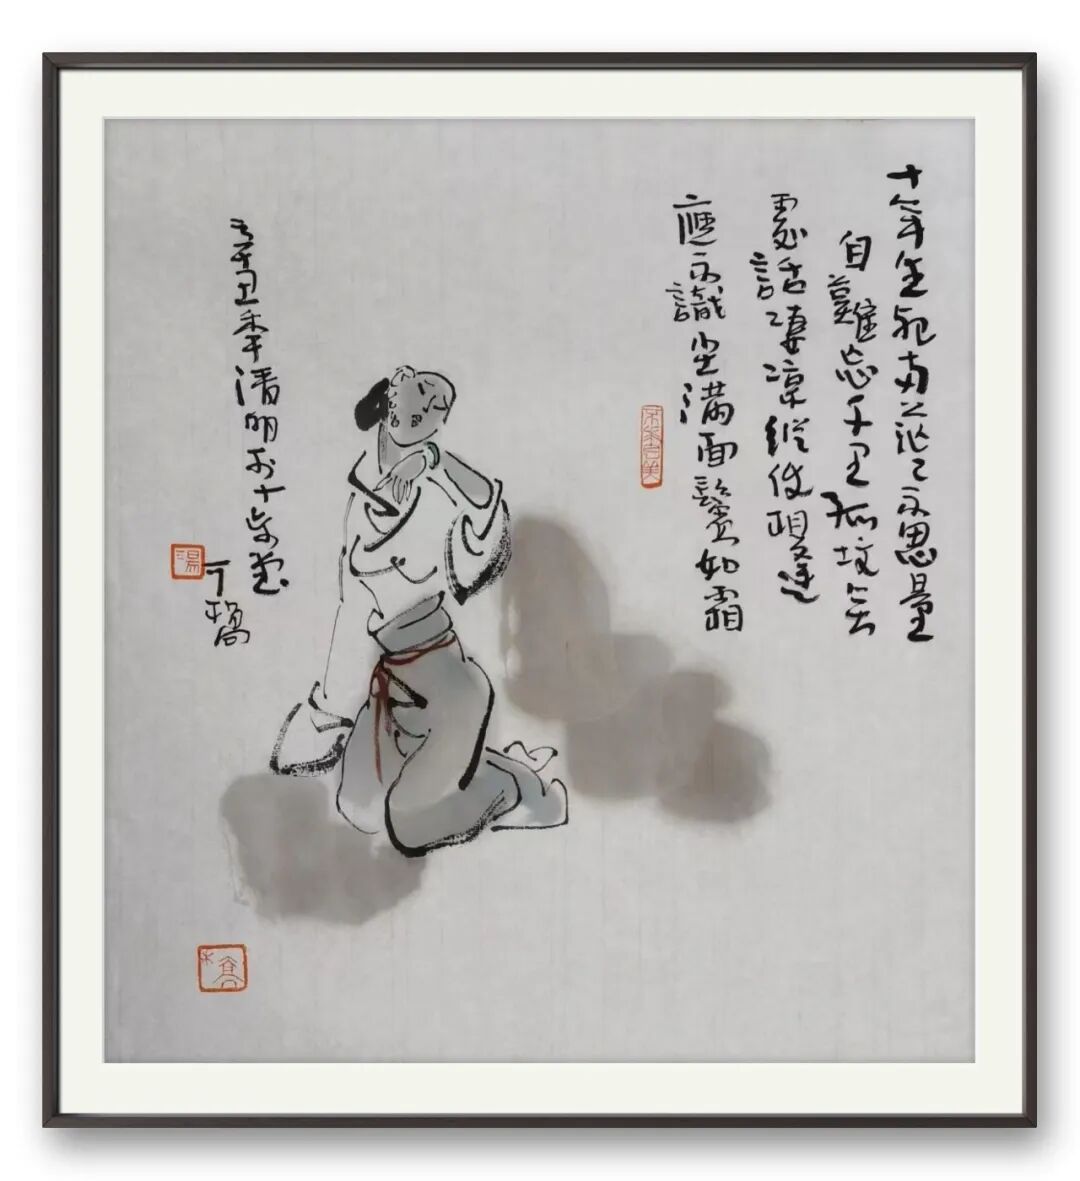 十年生死两茫茫不思量
自難忘千里孤坟無
處話凄凉縱使相逢
應不識尘满面鬓如霜
辛丑年清明於十